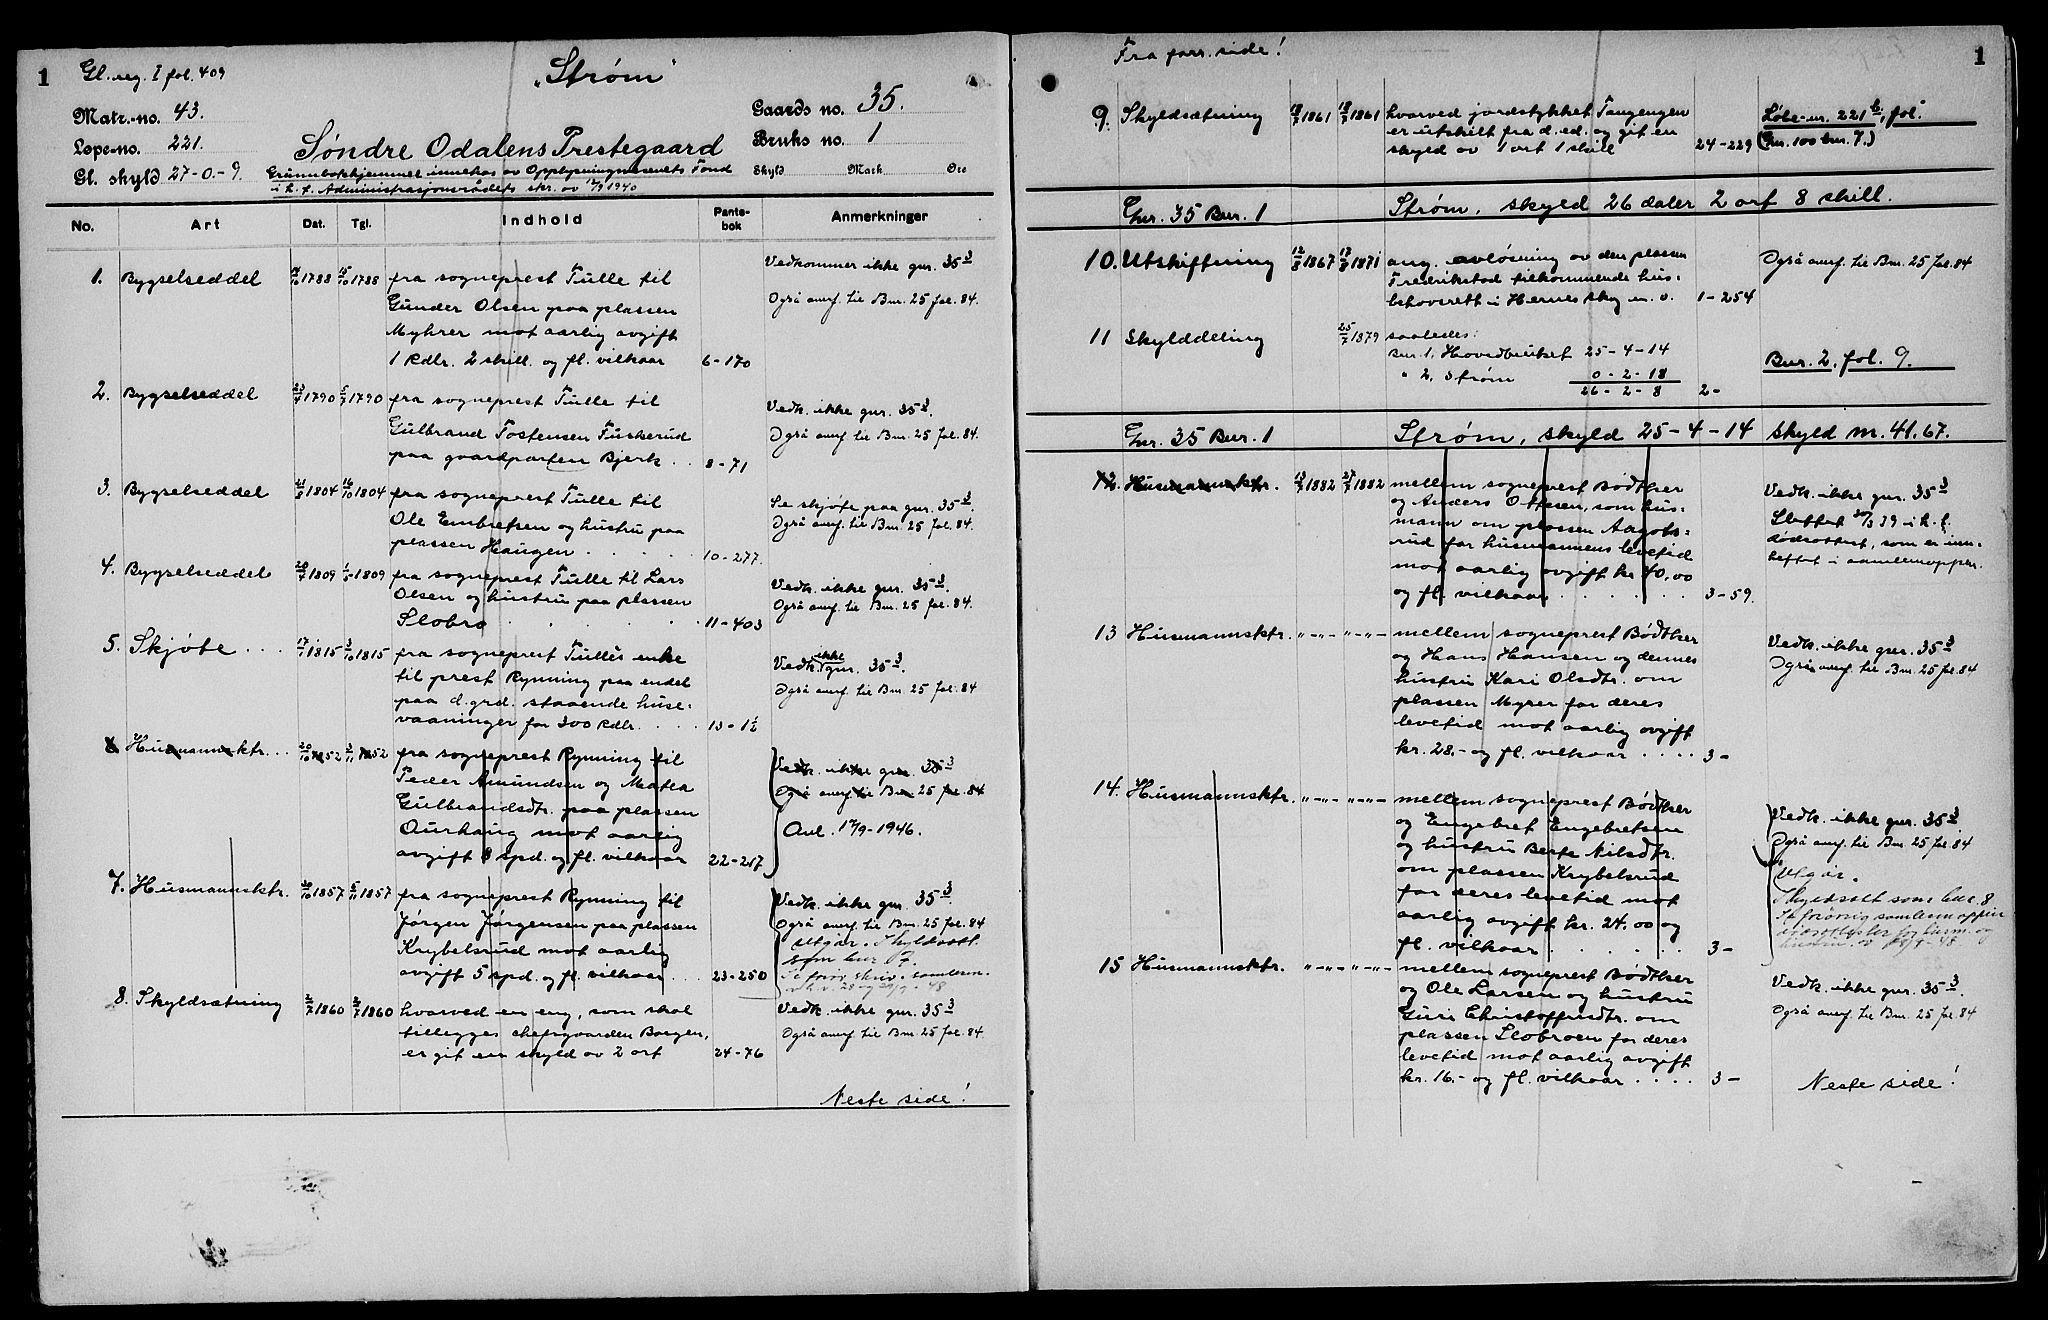 1
Gl. reg. I fol. 409
"Strøm"
Matr.-no. 43.
Gaards no. 35.
Løpe-no. 221.
Søndre Odalens Prestegaard
Bruks no. 1
Gl. skyld 27-0-9.
Grunnbokhjemmel innehas av Opplysningsvesenets Fond
Skyld Mark Øre
i h. t. Administrasjonsrådets skr. av 12/9 1940
No. Art Dat. Tgl. Indhold Pante-bok Anmerkninger
1. Bygselseddel 14/10 1788 15/10 1788 fra sogneprest Tulle til
Gunder Olsen paa plassen
Myhrer mot aarlig avgift
1 Rdlr. 2 skill. og fl. vilkaar 6-170
Vedkommer ikke gnr. 35 3
Også anmf. til Bnr. 25 fol. 84.
2. Bygselseddel 1790 1790 fra sogneprest Tulle til
Gulbrand Tostensen Fuskerud
paa gaardparten Bjerk . . 8-71
Vedk. ikke gnr. 35 3.
Også anmf. til Bnr. 25 fol. 84.
3. Bygselseddel 21/8 1804 16/10 1804 fra sogneprest Tulle til
Ole Embretsen og hustru paa
plassen Haugen . . . . 10-277.
Se skjøte paa gnr. 35 3.
Også anmf. til Bnr. 25 fol. 84.
4. Bygselseddel 1809 1809 fra sogneprest Tulle til Lars
Olsen og hustru paa plassen
Slobro . . . . 11-403
Vedk. ikke gnr. 35 3.
Også anmf. til Bnr. 25 fol. 84.
5. Skjøte . . . 17/7 1815 3/10 1815 fra sogneprest Tulles enke
til prest Rynning paa endel
paa d. grd. staaende huse-
vaaninger for 300 Rdlr. . . . 13-1½
Vedk. ikke gnr. 35 3.
Også anmf. til Bnr. 25 fol. 84
6 Husmannsktr. . . 1852 1852 fra sogneprest Rynning til
Peder Amundsen og Matea
Gulbrandsdtr. paa plassen
Aurhaug mot aarlig
avgift 8 spd. og fl. vilkaar 22-217
Vedk. ikke gnr. 35 3
Også anmf. til Bnr. 25 fol. 84
Avl. 17/9-1946.
7. Husmannsktr. 1857 1857 fra sogneprest Rynning til
Jørgen Jørgensen paa plassen
Krybelsrud mot aarlig
avgift 5 spd. og fl. vilkaar . . 23-250
Vedk. ikke gnr. 35 3.
Også anmf. til Bnr. 25 fol. 84
Utgår. Skyldsatt
som bnr 87.
8. Skyldsætning 2/7 1860 2/7 1860 hvorved en eng, som skal
tillegges chefsgaarden Borgen,
er git en skyld av 2 ort 24-76
Vedk. ikke gnr. 35 3
Også anmf. til Bnr. 25 fol. 84.
Neste side!
Fra forr. side!
1
9. Skyldsætning 18/7 1861 18/7 1861 hvorved jordstykket Tangengen
er utskilt fra d. ed. og git en
skyld av 1 ort 1 skill 24-229
Løbe-nr. 221 b, fol.
(Gnr. 100 bnr. 7.)
Gnr. 35 Bnr. 1 Strøm, skyld 26 daler 2 ort 8 skill.
10. Utskiftning 12/8 1867 17/8 1871 ang. avløsning av den plassen
Fredrikstad tilkommende hus-
behovsrett i Hernes skog m. v. 1-254
Også anmf. til Bnr. 25 fol. 84
11 Skylddeling 25/7 1879 saaledes:
Bnr. 1, Hovedbruket 25-4-14
" 2, Strøm 0-2-18
26-2-8 2-
Bnr. 2, fol. 9.
Gnr. 35 Bnr. 1 Strøm, skyld 25-4-14 skyld m. 41.67.
12. Husmannsktr. 13/7 1882 27/7 1882 mellem sogneprest Bødtker
og Anders Ottesen, som hus-
mann om plassen Aagots-
rud for husmannens levetid
mot aarlig avgift kr. 40,00
og fl. vilkaar . . . . . . 3-59.
Vedk. ikke gnr. 35 3
Slettet 30/3 39 i h. t.
dødsattest, som er inn-
heftet i samlemappen.
13 Husmannsktr. "-"- "-"- mellem sogneprest Bødtker
og Hans Hansen og dennes
hustru Kari Olsdtr. om
plassen Myrer for deres
levetid mot aarlig avgift
kr. 28.- og fl. vilkaar . . . . 3-
Vedk. ikke gnr. 35 3
Også anmf. til Bnr. 25 fol. 84
14. Husmannsktr. "-"- "-"- mellem sogneprest Bødtker
og Engebret Engebretsen
og hustru Berte Nilsdtr.
om plassen Krybelsrud
for deres levetid mot
aarlig avgift kr. 24.00 og
fl. vilkaar . . . . 3-
Vedk. ikke gnr. 35 3
Også anmf. til Bnr. 25 fol. 84
Utgår.
Skyldsatt som bnr. 8
15 Husmannsktr. "-"- "-"- mellem sogneprest Bødtker
og Ole Larsen og hustru
Guri Christoffersdtr. om
plassen Slobroen for deres
levetid mot aarlig avgift
kr. 16.- og fl. vilkaar . . . . 3-
Vedk. ikke gnr. 35 3.
Også anmf. til Bnr. 25 fol. 84
Neste side!